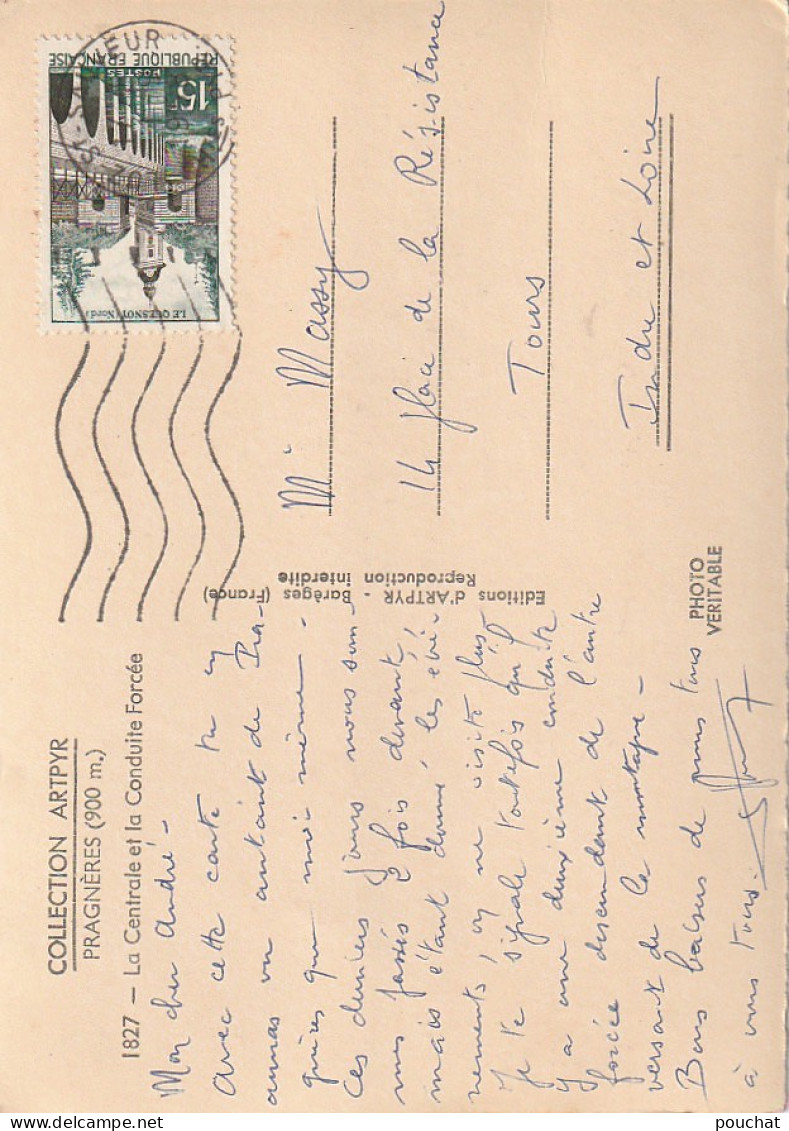 COLLECTION ARTPYR
PRAGNÈRES (900 m.)
1827 — La Centrale et la Conduite Forcée
Mon cher André -
Avec cette carte tu en
auras vu autant de Pra-
gnères que moi même -
Ces derniers jours nous som-
mes passés 2 fois devant,
mais étant donné les évé-
nements, on ne visite plus -
Je te signale toutefois qu'il
y a une deuxième conduite
forcée descendant de l'autre
versant de la montagne -
Bons baisers de nous tous
à vous tous.
Editions d'ARTPYR - Barèges (France)
Reproduction interdite
PHOTO
VERITABLE
RÉPUBLIQUE FRANÇAISE
POSTES
15F
LE QUESNOY (Nord)
Mr Massy
14 place de la Résistance
Tours
Indre et Loire
pouchat